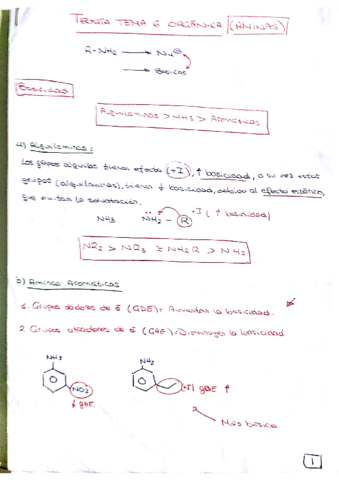 TEORÍA TEMA 6 ORGÁNICA (AMINAS)
R-NH2 → Nu⊖
→ Básicas
Basicidad
Alquilaminas > NH3 > Aromáticas
a) Alquilaminas:
Los grupos alquilos tienen efecto (+I), ↑ basicidad, a su vez estos
grupos (alquilaminas), tienen ↓ basicidad, debido al efecto estérico,
que evitan la solvatación.
NH3 NH2 - R +I (↑ basicidad)
NR2 > NR3 ≥ NH2R > NH3
b) Aminas Aromáticas
1. Grupos dadores de ē (GDE) = Aumentan la basicidad.
2. Grupos atractores de ē (GAE) = Disminuyen la basicidad
NH2 NH2
NO2 (+I) GDE ↑
↓ GAE
Más básico
1